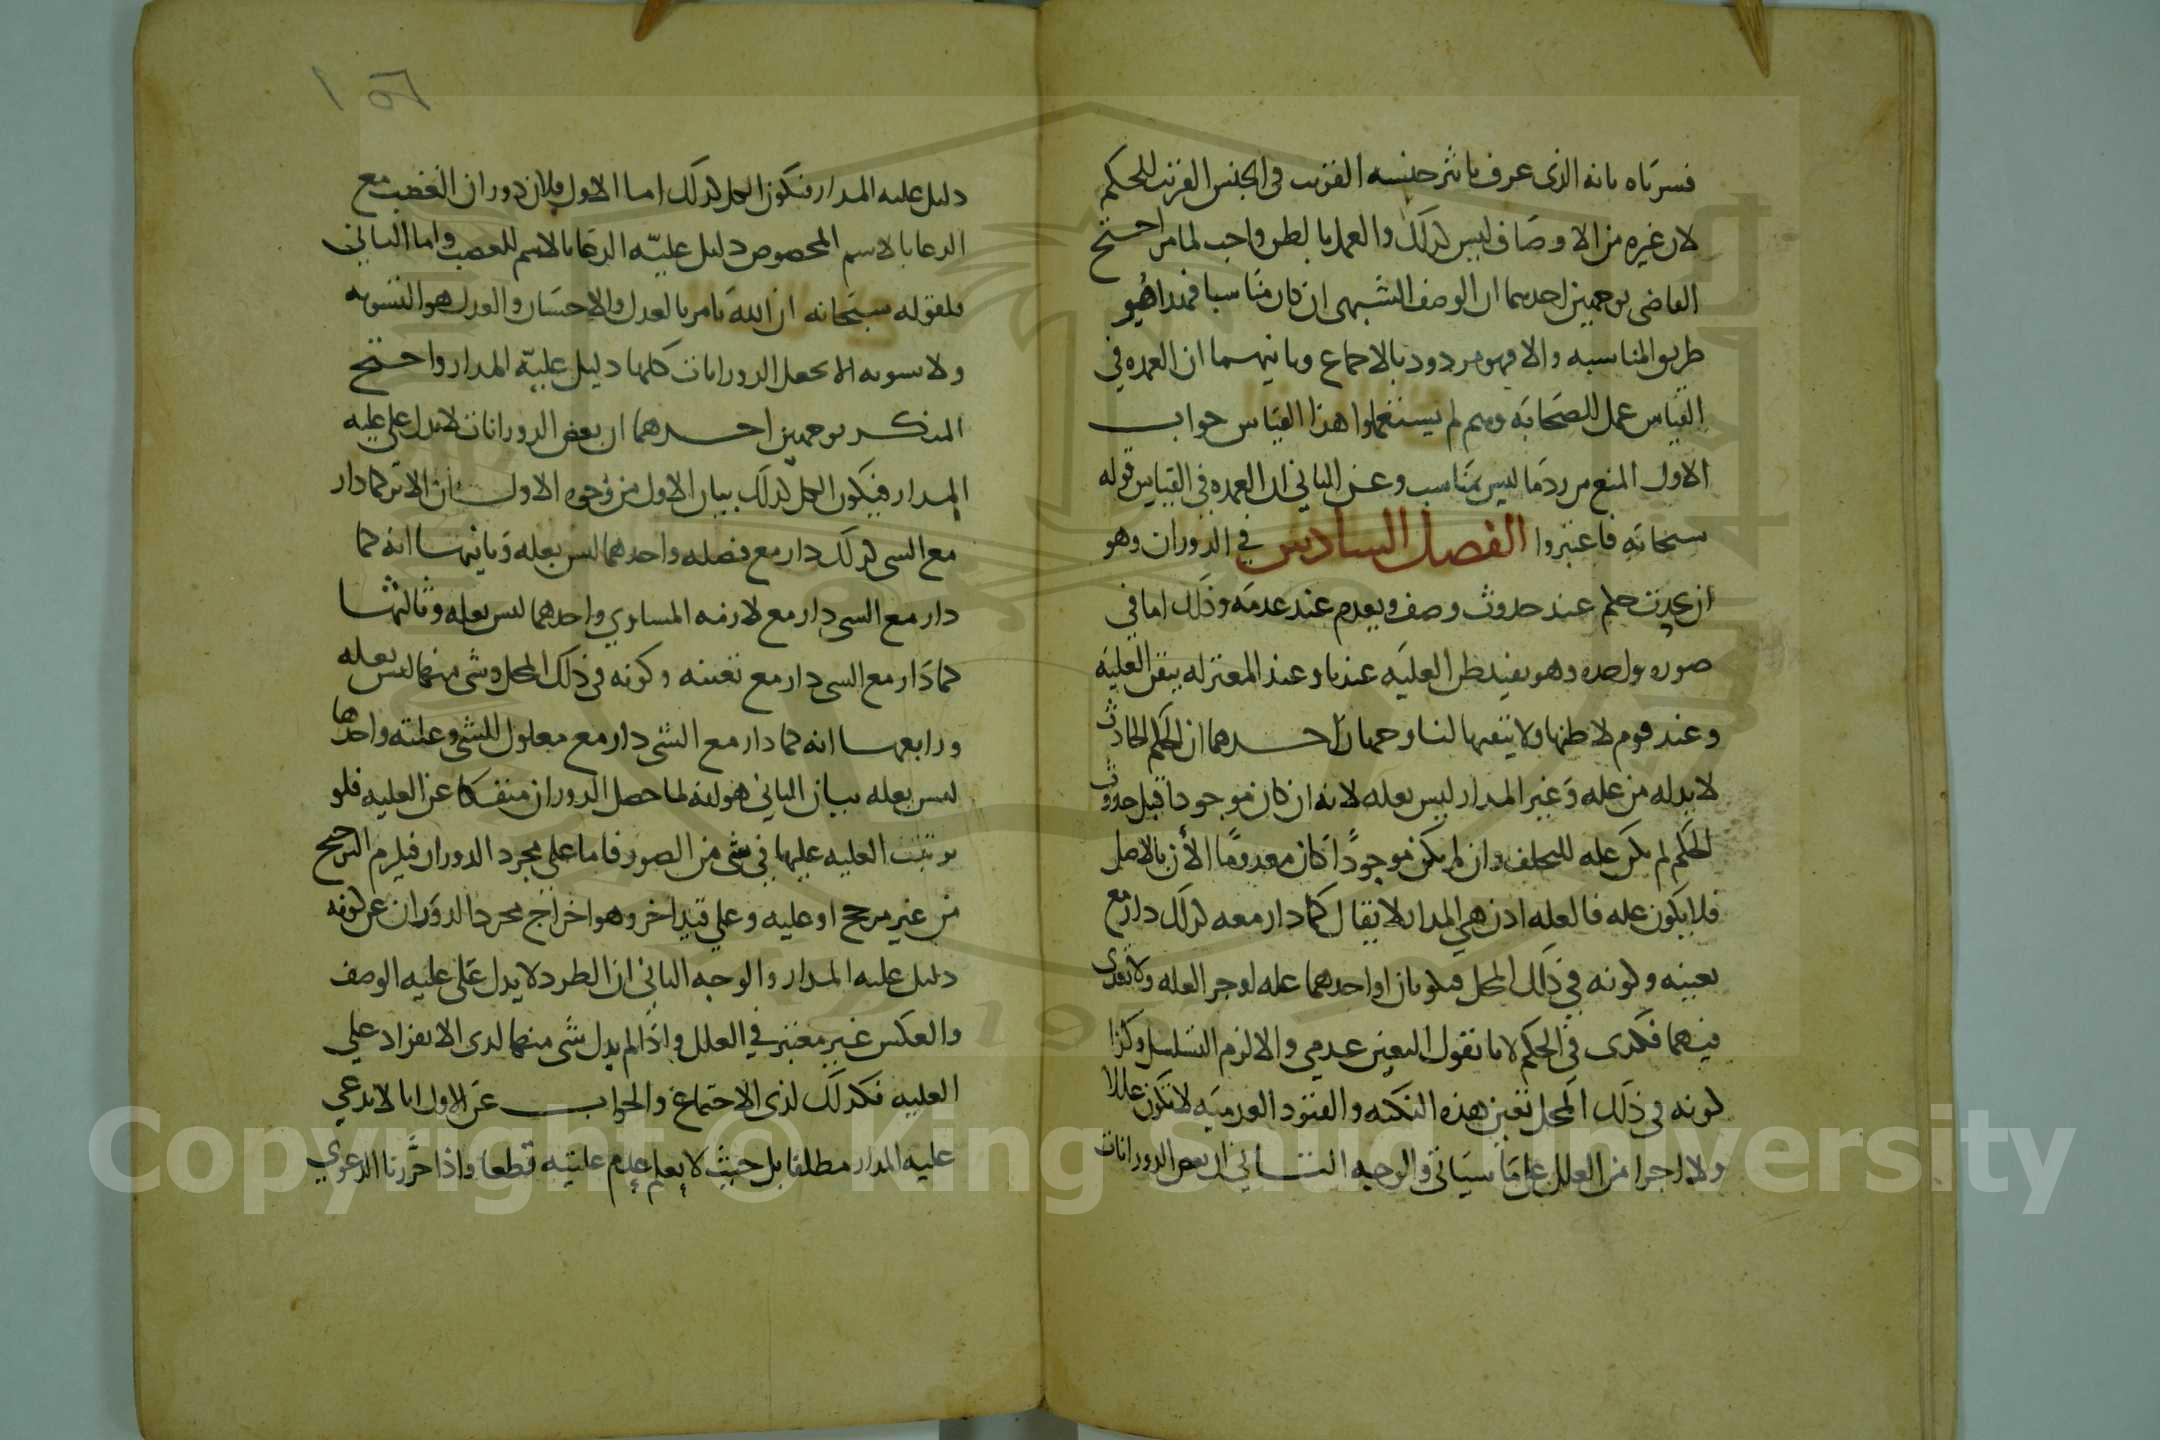 فسرناه بانه الذى عرف تاثير جنسه القريب فى الجنس القريب للحكم
لان غيره من الاوصاف ليس كذلك والعمل بالظن واجب لما مر احتج
القاضى بوجهين احدهما ان الوصف الشبهى ان كان مناسبا فهو
طريق المناسبه والا فهو مردود بالاجماع وثانيهما ان العمده فى
القياس عمل الصحابه وهم لم يستعملوا هذا القياس جواب
الاول المنع من رد ما ليس بمناسب وعن الثانى ان العمده فى القياس قوله
سبحانه فاعتبروا الفصل السادس في الدوران وهو
ان يحدث حكم عند حدوث وصف ويعدم عند عدمه وذلك اما فى
صوره واحده وهو يفيد ظن العليه عندنا وعند المعتزله يقين العليه
وعند قوم لا ظنها ولا يقينها لنا وجهان احدهما ان الحكم الحادث
لا بد له من عله وغير المدار ليس بعله لانه ان كان موجودا قبل حدوث
الحكم لم يكن عله للتخلف وان لم يكن موجودًا كان معدومًا الأن بالاصل
فلا يكون عله فالعله اذن هي المدار لا يقال كما دار معه كذلك دار مع
تعينه وكونه في ذلك المحل فلو كانا او احدهما عله لوجد العله ولا تعدى
فيهما فكذى في الحكم لانا نقول التعين عدمي والا لزم التسلسل وكذا
كونه فى ذلك المحل تعين هذه النكته والقيود العدميه لا تكون عللا
ولا اجزا من العلل على ما سياتى والوجه الثاني ان بعض الدورانات
دليل عليه المدار فيكون الكل كذلك اما الاول فلان دوران الغضب مع
الدعا بالاسم المخصوص دليل عليّه الدعا بالاسم للغضب واما الثاني
فلقوله سبحانه ان الله يامر بالعدل والاحسان والعدل هو التسويه
ولا تسويه الا بجعل الدورانات كلها دليل عليّه المدار واحتج
المنكر بوجهين احدهما ان بعض الدورانات لا يدل على عليه
المدار فيكون الكل كذلك بيان الاول من وجوه الاول ان الاثر كما دار
مع الشى كذلك دار مع فصله واحدهما ليس بعله وثانيها انه كما
دار مع الشى دار مع لازمه المساوي واحدهما ليس بعله وثالثها
كما دار مع الشى دار مع تعينه وكونه فى ذلك المحل وشى منهما ليس بعله
ورابعها انه كما دار مع الشى دار مع معلول الشى وعلته واحدها
ليس بعله بيان الثانى هو انه لما حصل الدوران منفكا عن العليه فلو
توقفت العليه عليها في شى من الصور فاما على مجرد الدوران فيلزم الترجيح
من غير مرجح او عليه وعلي قيد اخر وهو اخراج مجرد الدوران عن كونه
دليل عليه المدار والوجه الثانى ان الطرد لا يدل على عليه الوصف
والعكس غير معتبر في العلل واذا لم يدل شى منهما لدى الانفراد علي
العليه فكذلك لدى الاجتماع والجواب عن الاول انا لا ندعي
عليه المدار مطلقا بل حيث لا يعلم عدم عليته قطعا واذا حررنا الدعوي
Copyright © King Saud University